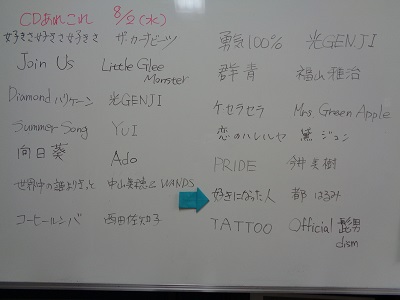 CDあれこれ 8/2(水)
好きさ好きさ好きさ ザ・カーナビーツ
Join Us Little Glee Monster
Diamondハリケーン 光GENJI
Summer Song YUI
向日葵 Ado
世界中の誰よりきっと 中山美穂とWANDS
コーヒールンバ 西田佐知子
勇気100% 光GENJI
群青 福山雅治
ケセラセラ Mrs Green Apple
恋のハレルヤ 黛 ジュン
PRIDE 今井美樹
好きになった人 都 はるみ
TATTOO Official 髭男
dism